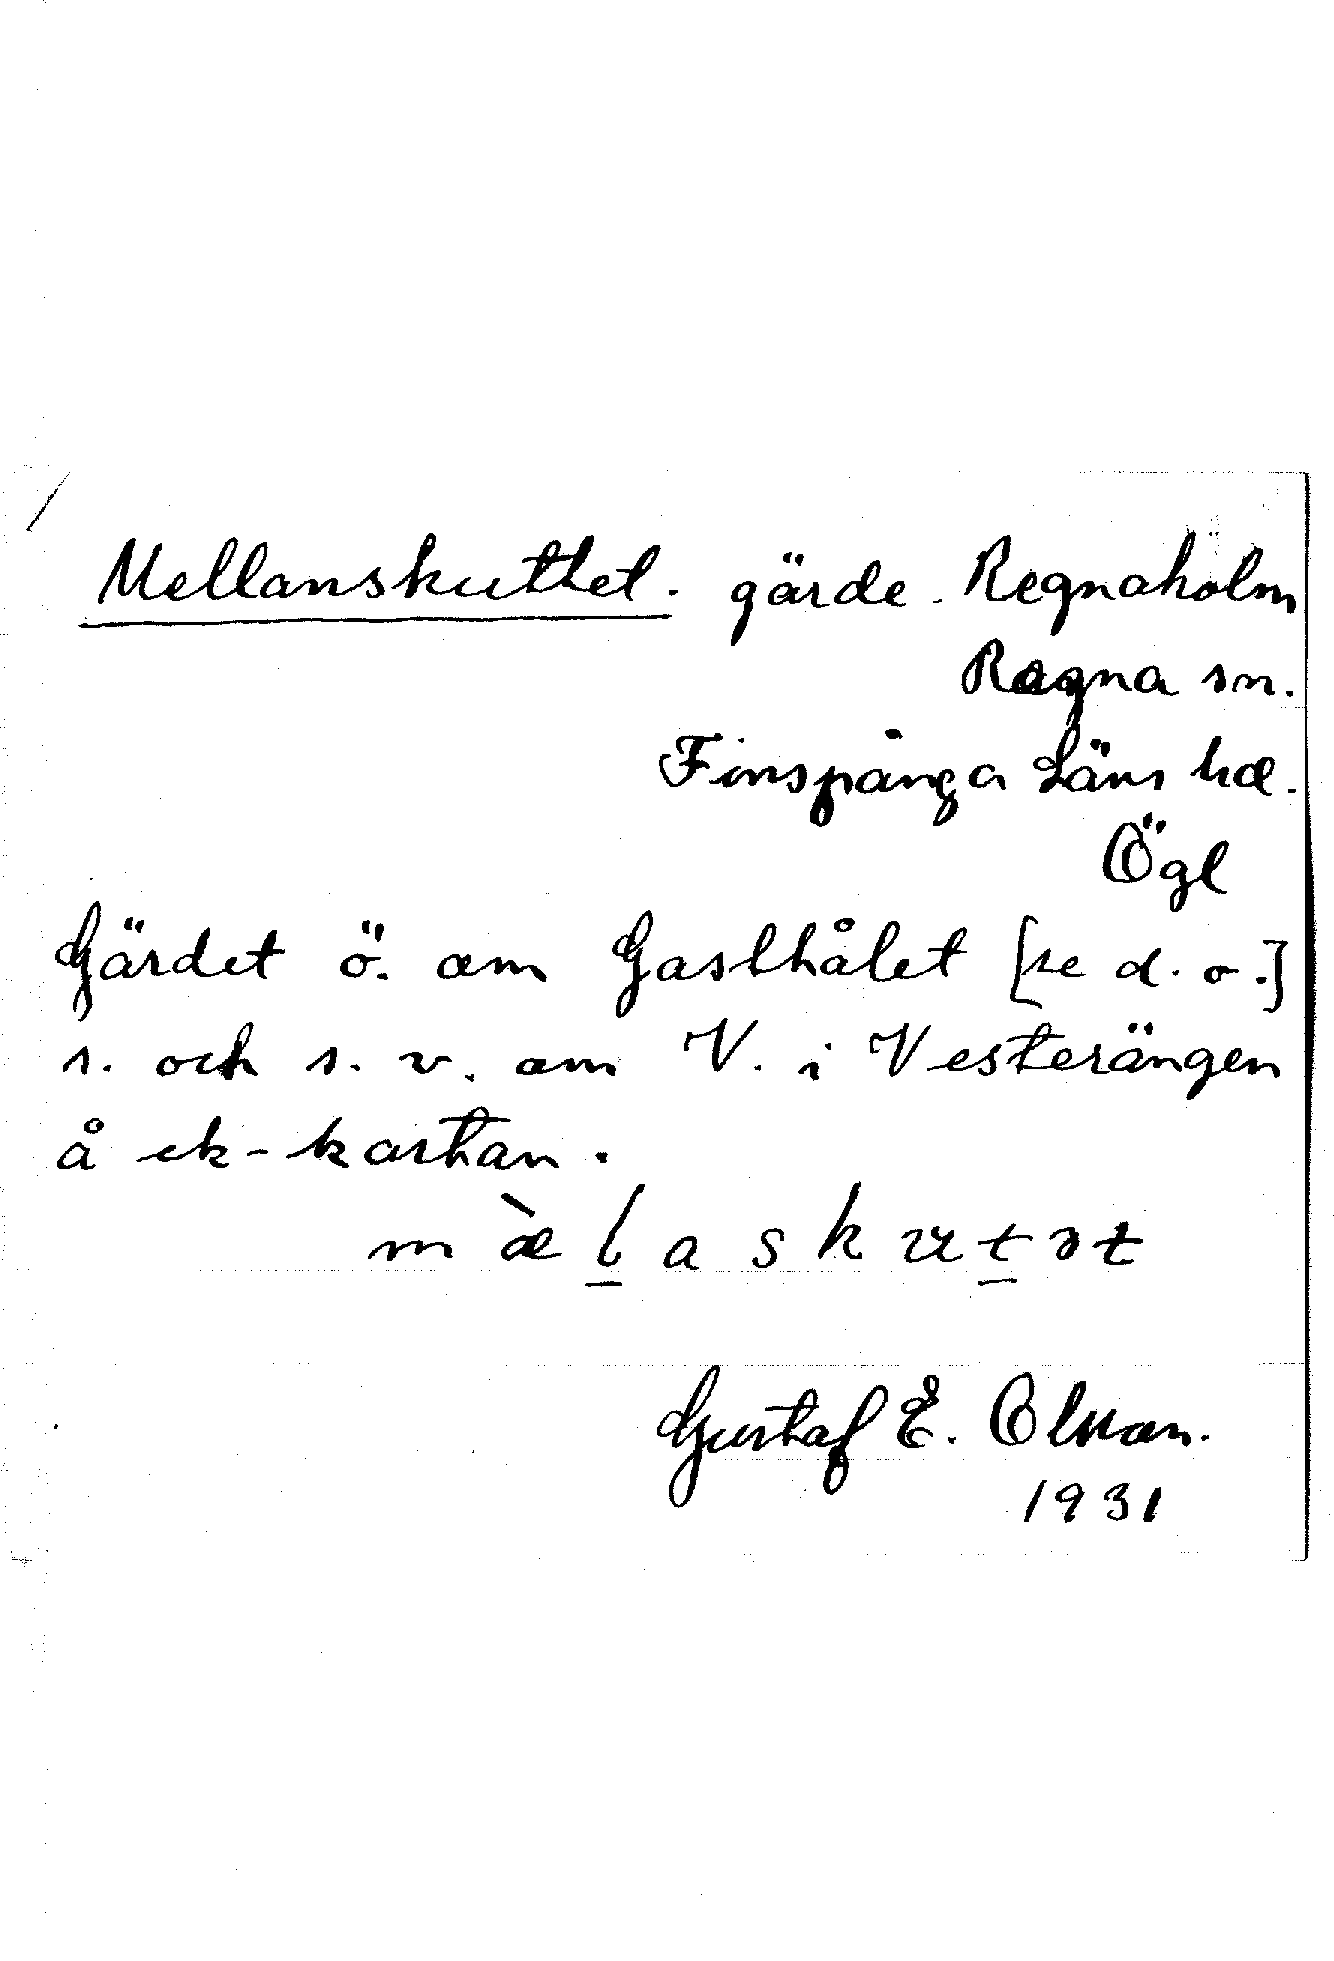 Mellanskuttet. gärde. Regnaholm
Regna sn.
Finspånga Läns hd.
Ögl
Gärdet ö. om Gaslhålet [se d. o.]
s. och s. v. om V. i Vesterängen
å ek-kartan.
m æ̀ l̲ a s k u t̲ ə t
Gustaf E. Olsson.
1931